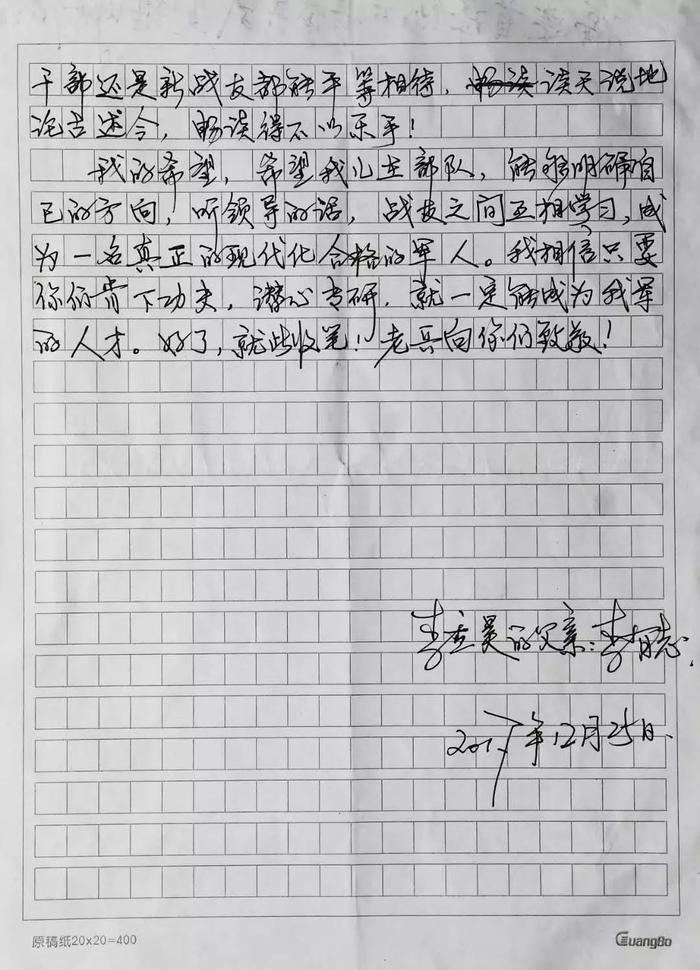 干部还是新战友都能平等相待，畅谈谈天说地
论古述今，畅谈得不亦乐乎！
我的希望，希望我儿在部队，能够明确自
己的方向，听领导的话，战友之间互相学习，成
为一名真正的现代化合格的军人。我相信只要
你们肯下功夫，潜心专研，就一定能成为我军
的人才。好了，就此收笔！老兵向你们致敬！
李昊的父亲：李志
2017年12月25日
原稿纸20x20=400
GuangBo